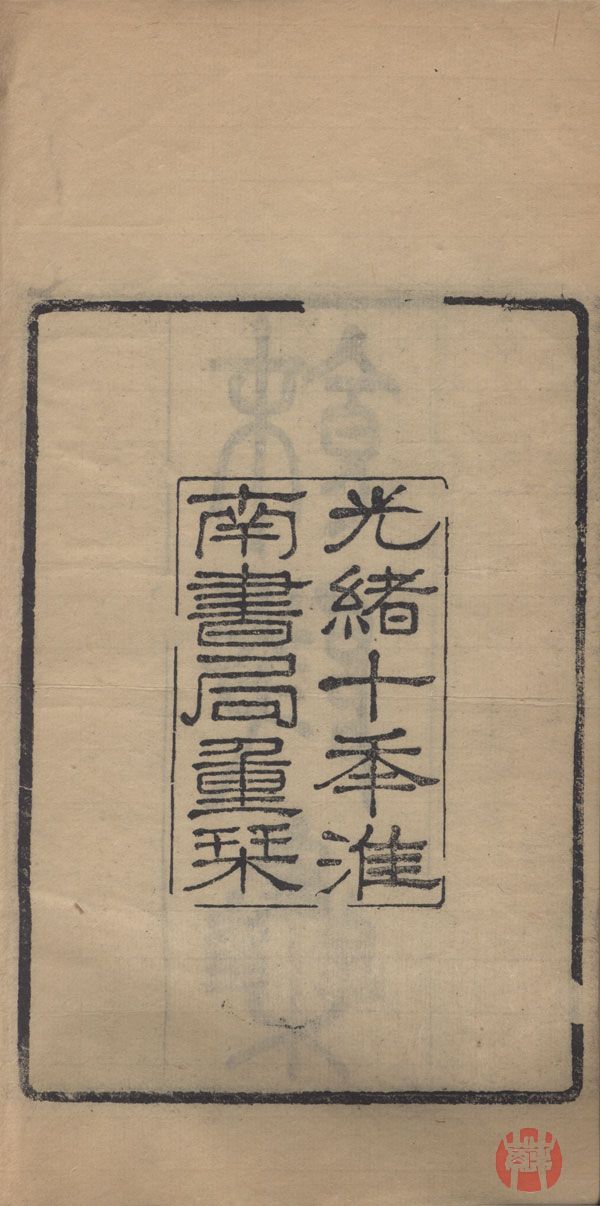 光緒十年淮
南書局重栞